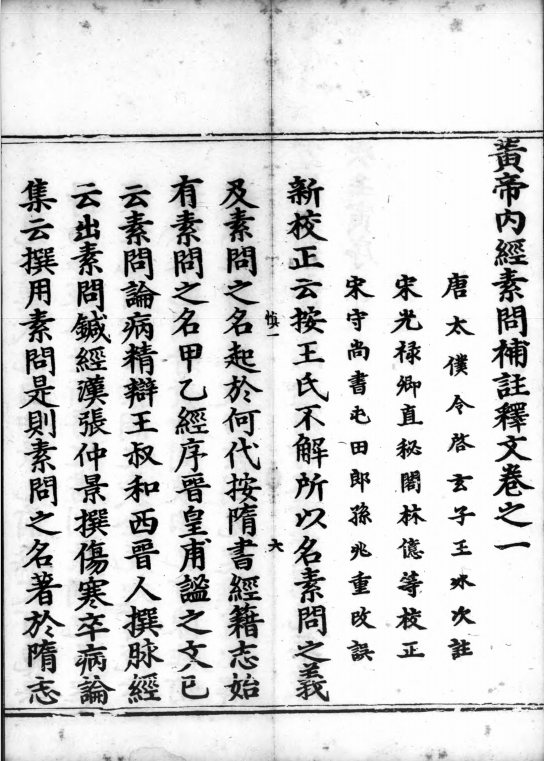 黃帝內經素問補註釋文卷之一
唐太僕令啓玄子王冰次註
宋光祿卿直秘閣林億等校正
宋守尚書屯田郎孫兆重改誤
新校正云按王氏不解所以名素問之義
慎一
六
及素問之名起於何代按隋書經籍志始
有素問之名甲乙經序晉皇甫謐之文已
云素問論病精辯王叔和西晉人撰脉經
云出素問鍼經漢張仲景撰傷寒卒病論
集云撰用素問是則素問之名著於隋志